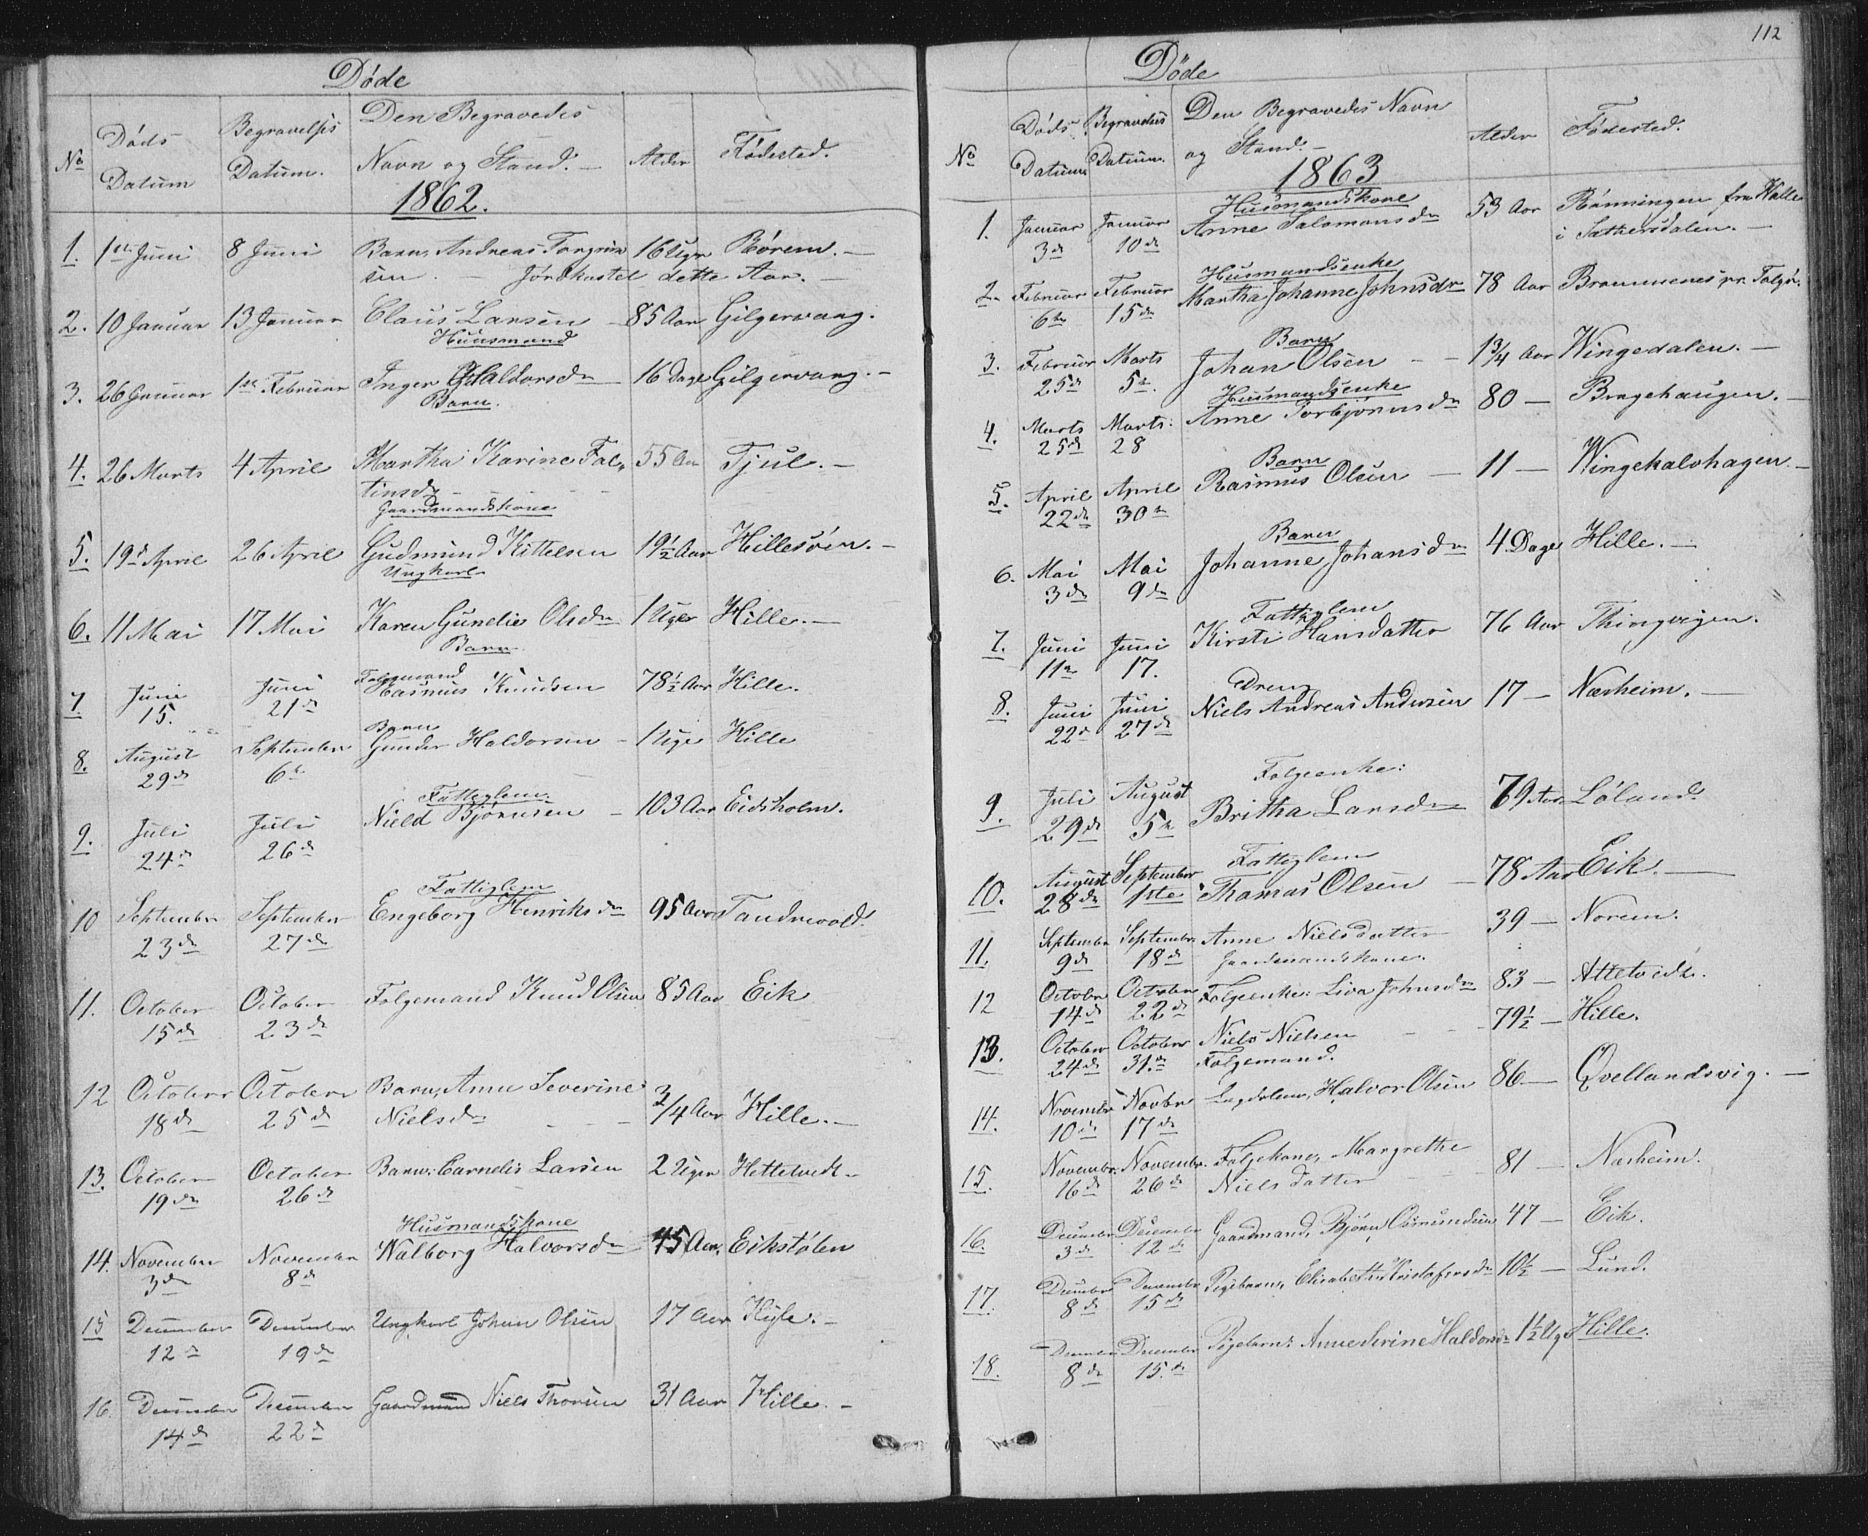 Døde
No
Døds Datum
Begravelses Datum.
Den Begravedes Navn og Stand. -
Alder
Fødested.
1862.
1. 1ste Juni 8 Juni Barn, Andreas Torgrim 16 Uger Børem. -
sen. - Jordkastet dette Aar. -
2. 10 Januar 13 Januar Claus Larsen - 85 Aar Gilgervang.
Huusmand
3. 26 Januar 1ste Februar Inger Haldorsdr 16 Dage Gilgervang. -
Barn.
4. 26 Marts 4 April Martha Karine Fal- 55 Aar Tjul. -
tinsdr - - -
Gaardmandskone
5. 19de April 26 April Gudmund Kittelsen 19½ Aar Hillesøen. -
Ungkarl
6. 11 Mai 17 Mai Karen Gunelie Olsdr 1 Uger Hille. -
Barn
Folgemand
7 Juni 15. Juni 21de Rasmus Knudsen 78½ Aar Hille.
Barn
8. August 29de September 6te Gunder Haldorsen - 1 Uge Hille
Fattiglem
9. Juli 24de Juli 26de Nield Bjørnsen - 103 Aar Eidsholm.
Fattiglem
10 September 23de September 27de Engeborg Henriksdr 95 Aar Tandevold.
11. October 15de October 23de Folgemand Knud Olsen 85 Aar Eik
12 October 18de October 25de Barn, Anne Severine
Nielsdr - - - 3/4 Aar Hille. -
13. October 19de October 26de Barn. Carnelis Larsen 2 Uger Hettelvedt -
Husmandskone
14. November 3de November 8de Walborg Halvorsdr 45 Aar, Eikstølen
15 December 12de December 19de Ungkarl Johan Olsen 17 Aar Høyle. -
16. December 14de December 22de Gaardmand Niels Thorsen 31 Aar Hille. -
112
Døde
No
Døds Datum
Begravelses Datum.
Den Begravedes Navn og Stand. -
Alder
Fødested.
1863
Husmandskone
1. Januar 3de Januar 10de Anne Salamonsdr 53 Aar Rønningen fra Walle
i Sætersdalen. -
Husmandsenke
2. Februar 6te Februar 15de Martha Johanne Johnsdr 78 Aar Brommenes pr. Falgø.
Barn
3. Februar 25de Marts 5te Johan Olsen - - 1¾ Aar Wingedalen. -
Husmandsenke
4. Marts 25de Marts: 28 Anne Torbjørnsdr 80 - Bregehaugen. -
Barn
5. April 22de April 30te Rasmus Olsen - 11 - Wingekalvhagen -
Barn
6. Mai 3de Mai 9de Johanne Johansdr 4 Dage Hille. -
Fattiglem
7. Juni 11te Juni 17. Kirsti Hansdatter 76 Aar Thingvigen.
Dreng
8. Juni 22de Juni 27de Niels Andreas Andersen 17 - Næsheim. -
Folgeenke:
9. Juli 29de August 5te Britha Larsdr 79 Aar Løland.
Fattiglem
10. August 28de September 1ste Thamas Olsen - 78 Aar Eik. -
11. September 9de September 18de Anne Nielsdatter 39 - Norem.
Gaardmandskone.
12 October 14de October 22de Folgeenke: Liva Johnsdr 83 - Attetvedt.
13. October 24de October 31te Niels Nielsen - - 79½ - Hille.
Folgemand.
14. November 10de Novbr 17de Lægdslem, Halvor Olsen 86 - Qvellandsvig. -
15. November 16de November 26de Folgekone, Margrethe
Nielsdatter - - 81 - Næsheim.
16. December 3de December 12te Gaardmand, Bjørn Osmundsen 47 - Eik.
17. December 8de December 15de Pigebarn, Elisabeth Kristofersdr 10½ - Lund.
18. December 8de December 15de Pigebarn: Anne Serine Haldorsdr 1½ Uge Hille.